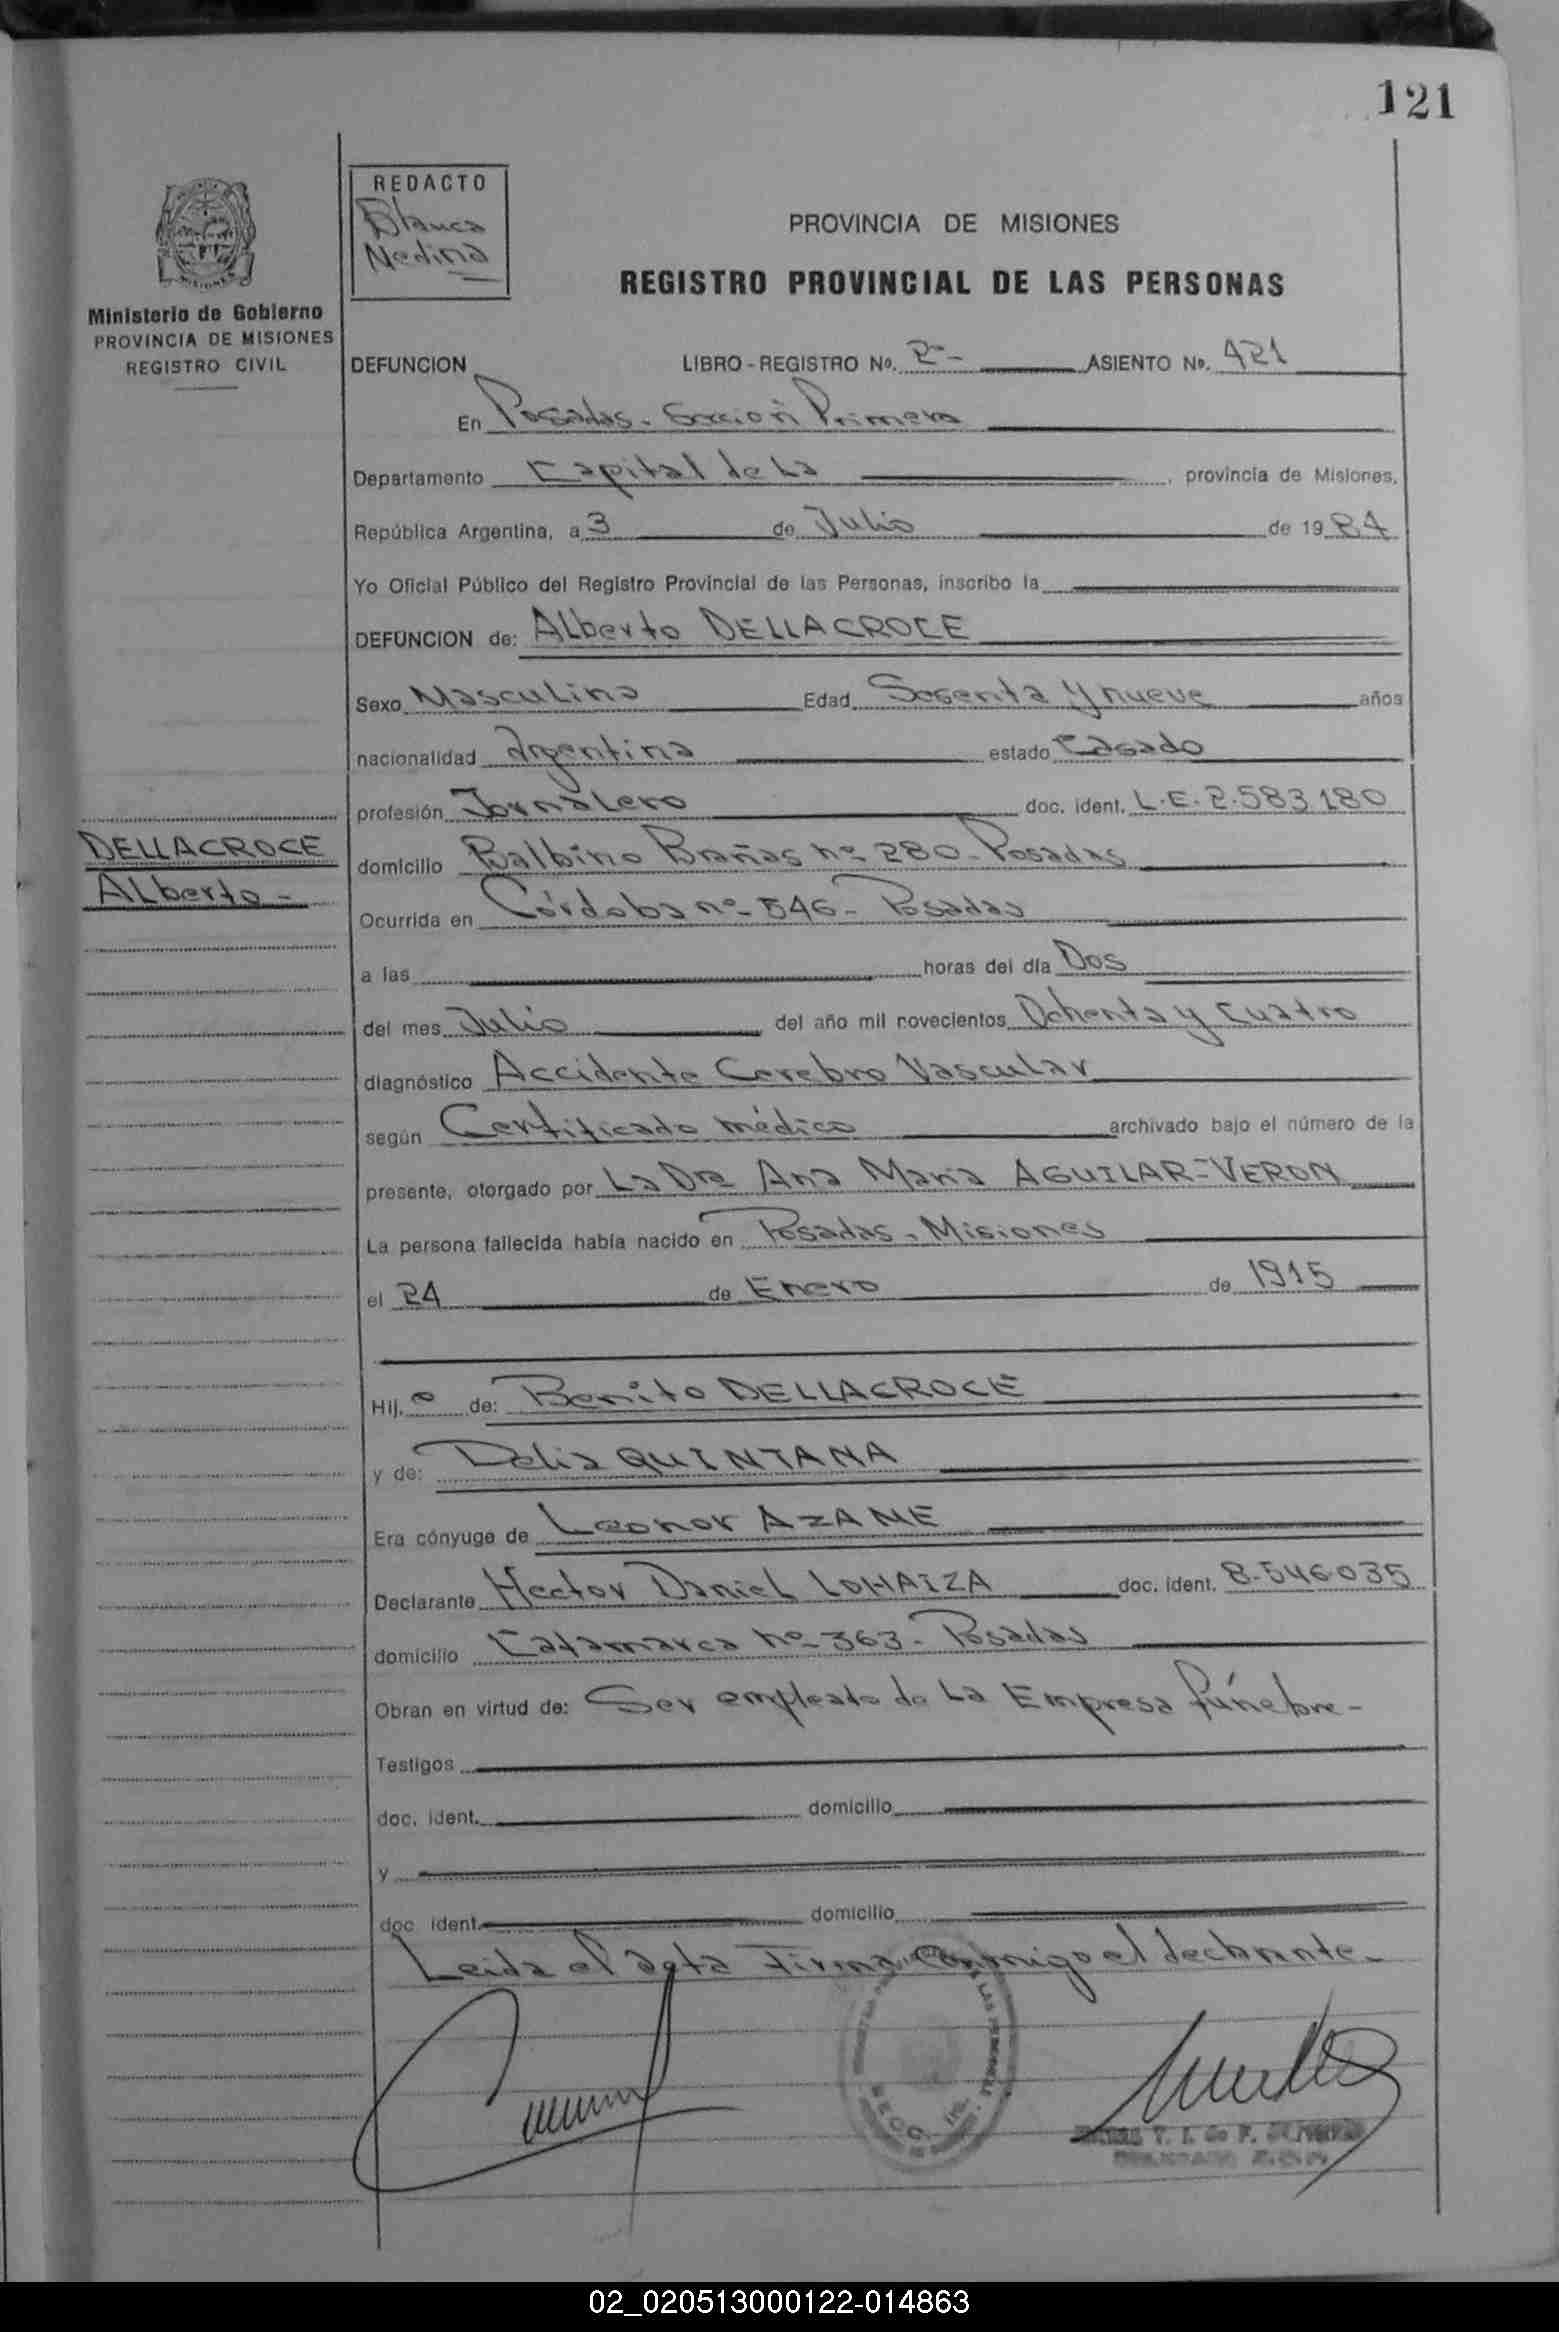 121
REDACTO
Blanca
Medina
PROVINCIA DE MISIONES
REGISTRO PROVINCIAL DE LAS PERSONAS
MISIONES
Ministerio de Gobierno
PROVINCIA DE MISIONES
REGISTRO CIVIL
DEFUNCION LIBRO - REGISTRO No. 2º- ASIENTO No. 421
En Posadas. Sección Primera
Departamento Capital de La , provincia de Misiones,
República Argentina, a 3 de Julio de 1984
Yo Oficial Público del Registro Provincial de las Personas, inscribo la
DEFUNCION de: Alberto DELLACROCE
Sexo Masculino Edad Sesenta y nueve años
nacionalidad Argentina estado Casado
profesión Jornalero doc. ident. L.E. 2.583.180
DELLACROCE
Alberto-
domicilio Balbino Brañas nº 280- Posadas
Ocurrida en Córdoba nº- 546- Posadas
a las horas del día Dos
del mes Julio del año mil novecientos Ochenta y Cuatro
diagnóstico Accidente Cerebro Vascular
según Certificado médico archivado bajo el número de la
presente, otorgado por La Dra Ana María AGUILAR-VERON
La persona fallecida había nacido en Posadas, Misiones
el 24 de Enero de 1915
Hij. o de: Benito DELLACROCE
y de: Delia QUINTANA
Era cónyuge de Leonor AZAME
Declarante Hector Daniel LOHAIZA doc. ident. 8.546035
domicilio Catamarca nº- 363- Posadas
Obran en virtud de: Ser empleado de La Empresa fúnebre-
Testigos
doc. ident. domicilio
y
doc. ident. domicilio
Leida el acta Firma conmigo el declarante-
LAS PERSONAS
SECC.
T. I. de F.
02_020513000122-014863